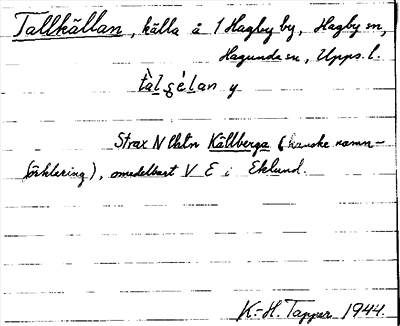 Tallkällan, källa å 1 Hagby by, Hagby sn,
Hagunda sn, Upps. l.
tàlʂélan y
Strax N Utn Källberga (kanske namn-
förklaring), omedelbart V E i Eklund.
K.-H. Tapper 1944.